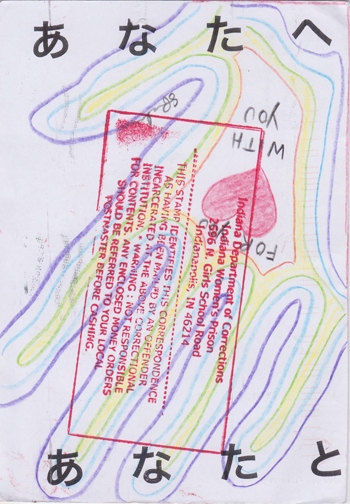 あなたへ
FOR
WITH
YOU
Indiana Department of Corrections
Indiana Women's Prison
2596 N. Girls School Road
Indianapolis, IN 46214
THIS STAMP IDENTIFIES THIS CORRESPONDENCE
AS HAVING BEEN MAILED BY AN OFFENDER
INCARCERATED AT THE ABOVE CORRECTIONAL
INSTITUTION. WARNING: NOT RESPONSIBLE
FOR CONTENTS. ANY ENCLOSED MONEY ORDERS
SHOULD BE REFERRED TO YOUR LOCAL
POSTMASTER BEFORE CASHING.
あなたと